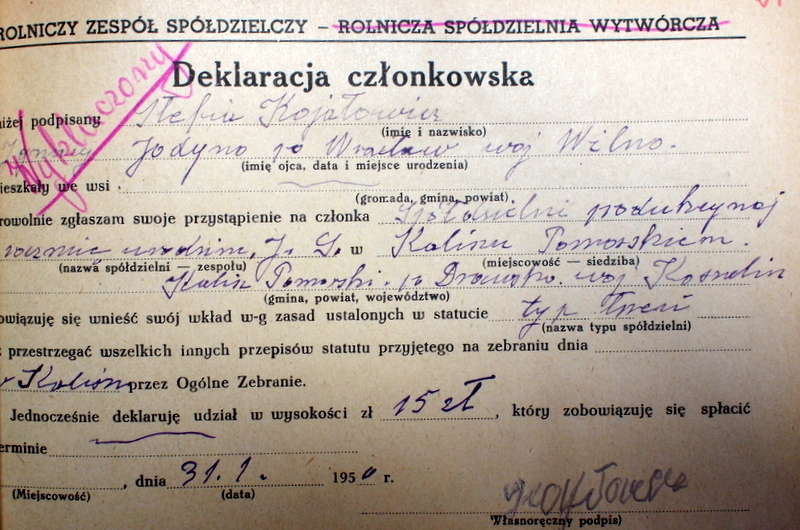 ROLNICZY ZESPÓŁ SPÓŁDZIELCZY – ROLNICZA SPÓŁDZIELNIA WYTWÓRCZA
Wykluczony
Deklaracja członkowska
niżej podpisany Stefia Kojałowicz
(imię i nazwisko)
Jodyno po Wrocław woj Wilno.
(imię ojca, data i miejsce urodzenia)
mieszkały we wsi .
(gromada, gmina, powiat).
rowolnie zgłaszam swoje przystąpienie na członka
J. G. w Kalinu Pomorskiem.
(nazwa spółdzielni — zespołu) (miejscowość — siedziba)
Kalisz Pomorski. po Drawsko. woj Koszalin
(gmina, powiat, województwo)
owiązuję się wnieść swój wkład w-g zasad ustalonych w statucie typ
(nazwa typu spółdzielni)
przestrzegać wszelkich innych przepisów statutu przyjętego na zebraniu dnia
przez Ogólne Zebranie.
Jednocześnie deklaruję udział w wysokości zł 15 zł, który zobowiązuję się spłacić
erminie
, dnia 31.1. 1950 r.
(Miejscowość) (data)
Własnoręczny podpis)